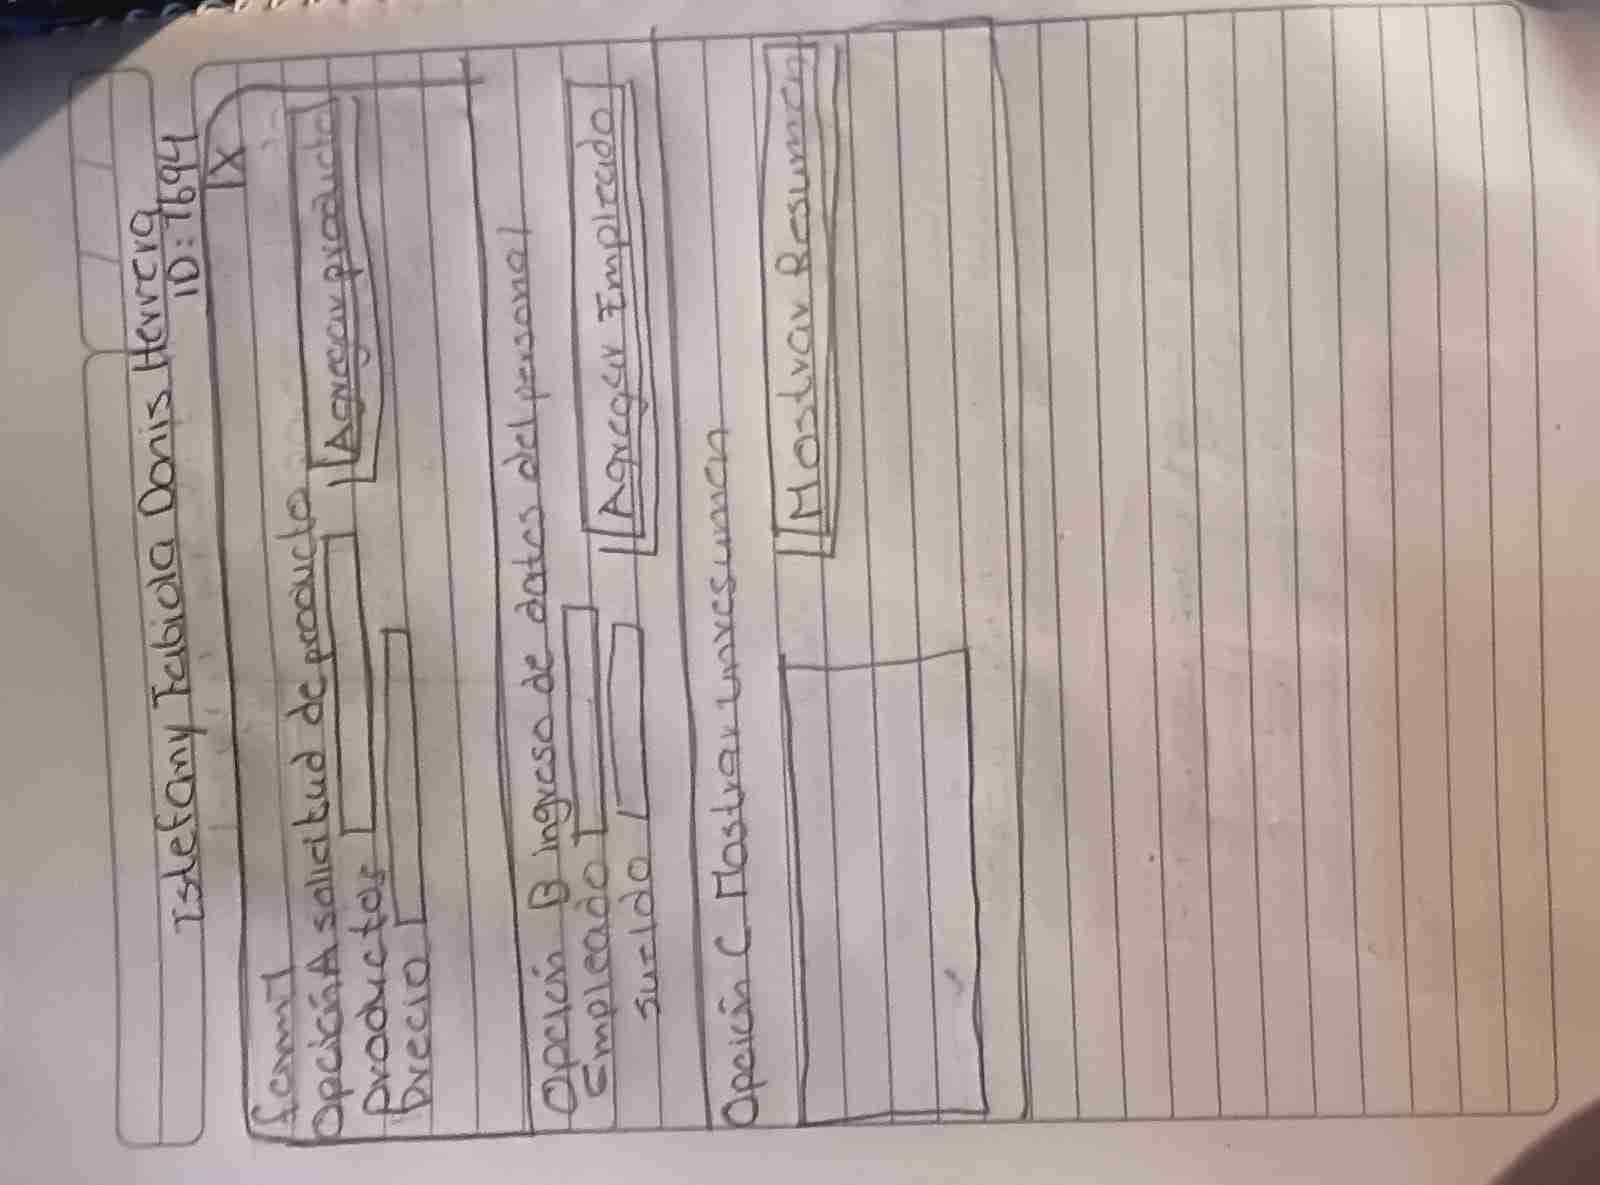 Istefany Fabiola Donis Herrera
ID: 7694
form1 X
Opción A solicitud de producto
Productos
Agregar producto
Precio
Opción B ingreso de datos del personal
Empleado
Agregar Empleado
sueldo
Opción C Mostrar un resumen
Mostrar Resumen